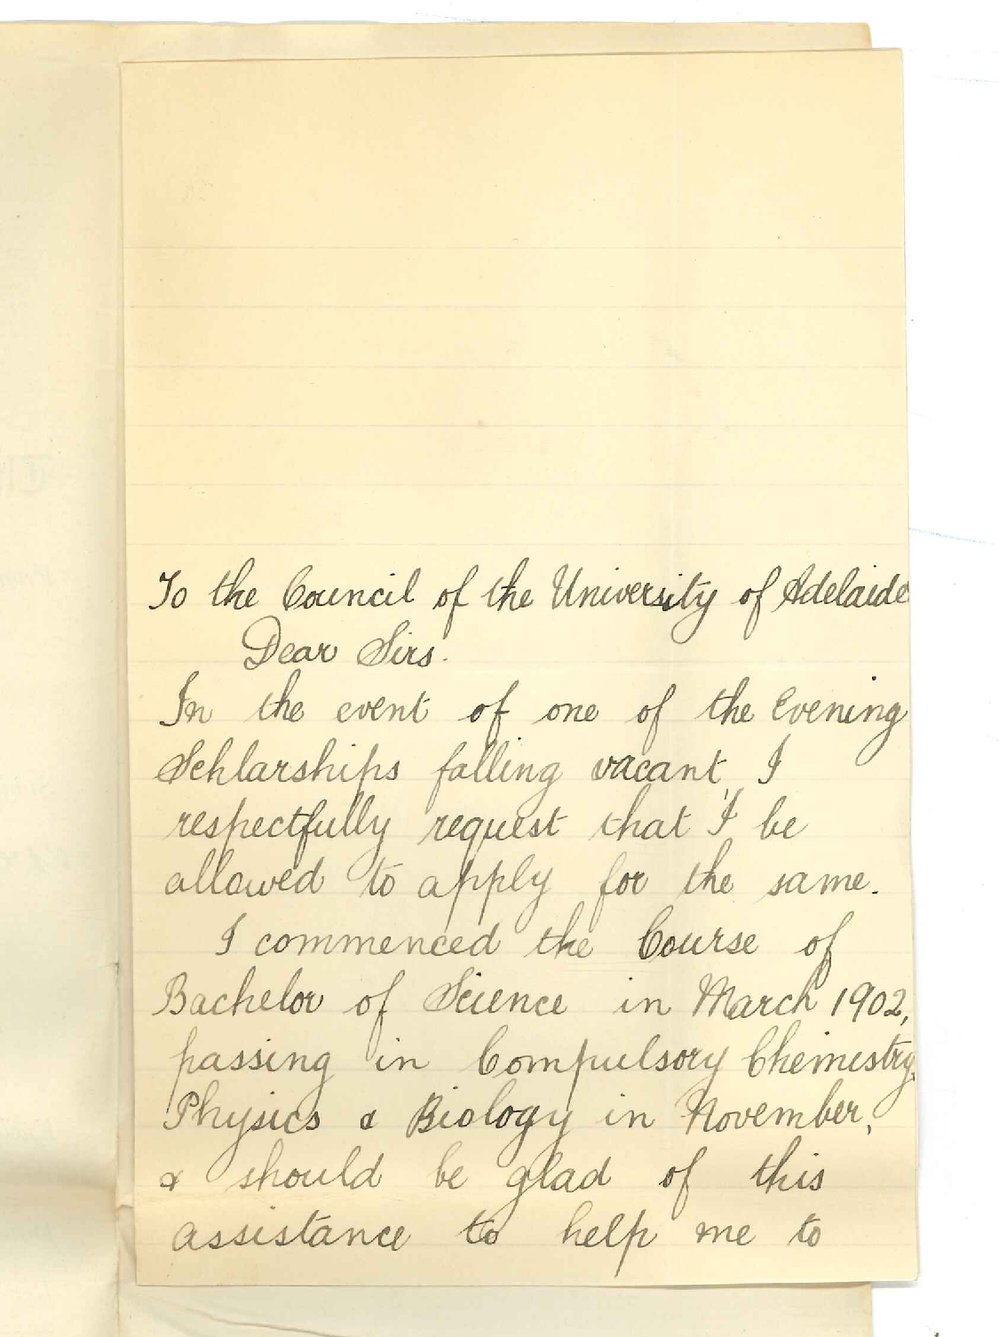 To the Council of the University of Adelaide
Dear Sirs.
In the event of one of the Evening
Schlarships falling vacant, I
respectfully request that I be
allowed to apply for the same.
I commenced the Course of
Bachelor of Science in March 1902,
passing in Compulsory Chemistry,
Physics & Biology in November,
& should be glad of this
assistance to help me to